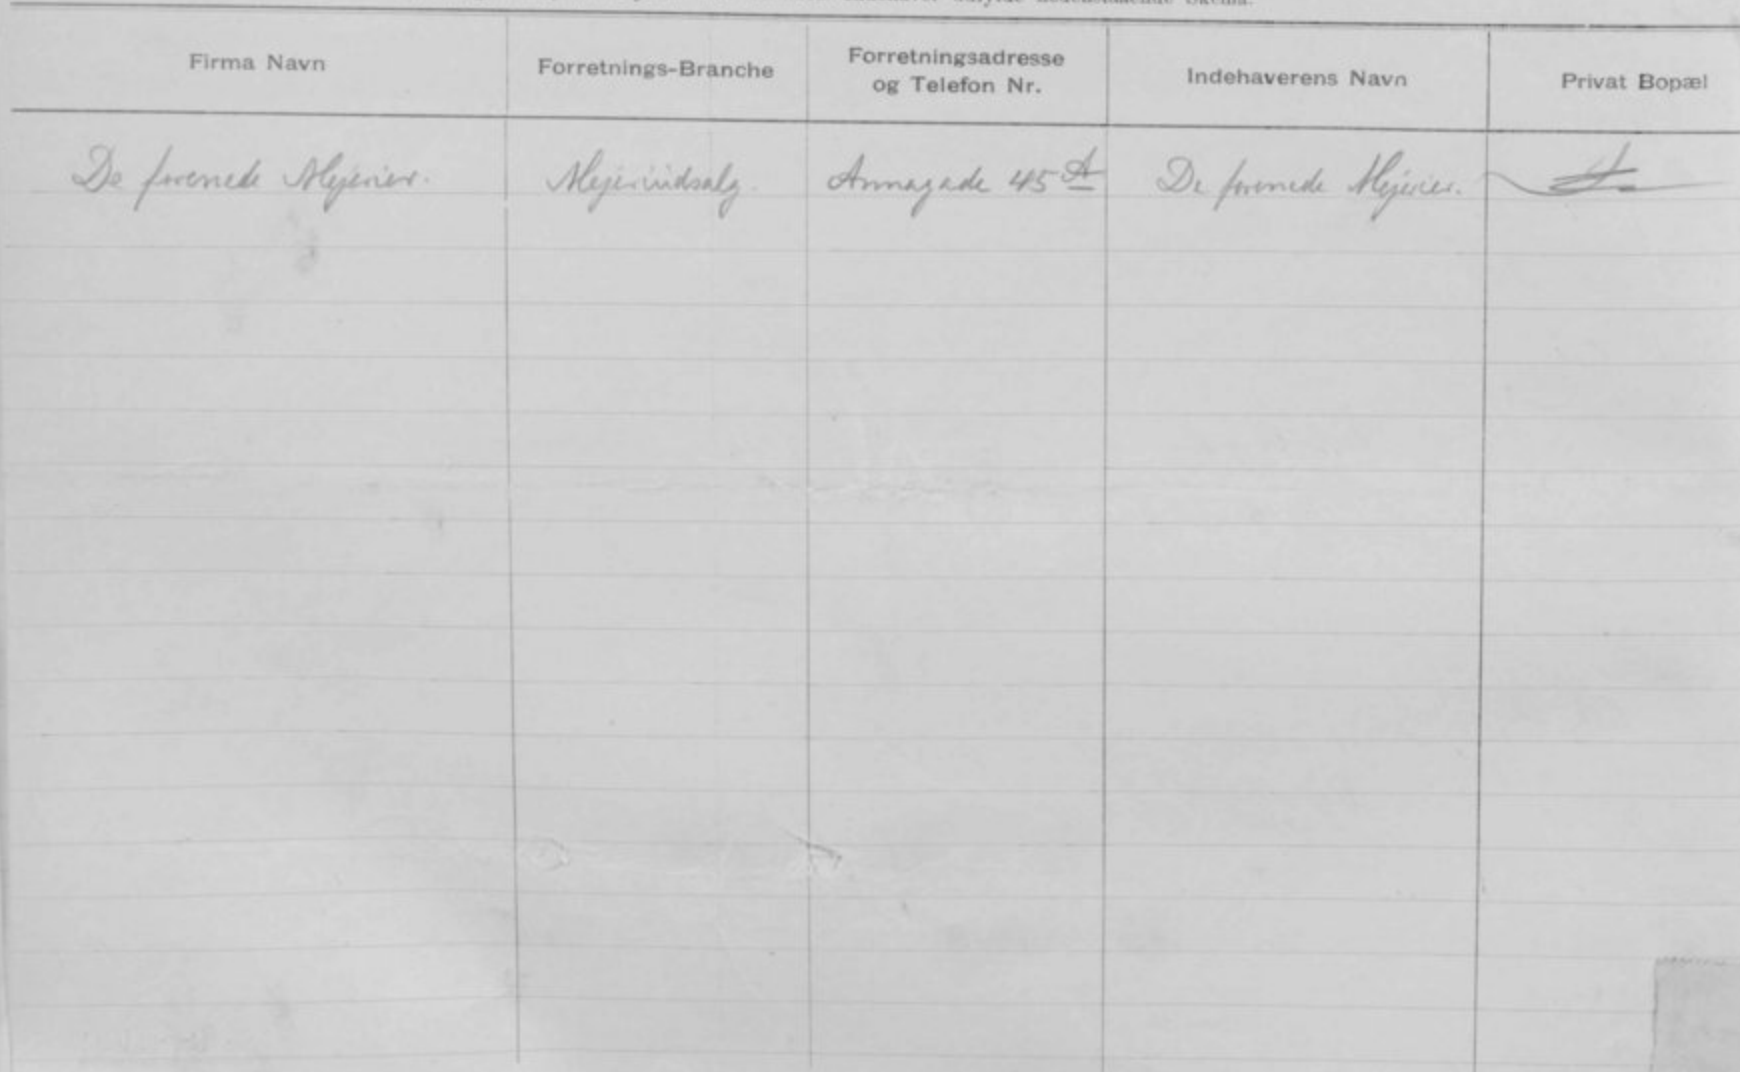 udfylde nedenstaaende Skema.
Firma Navn
Forretnings-Branche
Forretningsadresse
og Telefon Nr.
Indehaverens Navn
Privat Bopæl
De forenede Mejerier.
Mejeriudsalg.
Annagade 45 A
De forenede Mejerier.